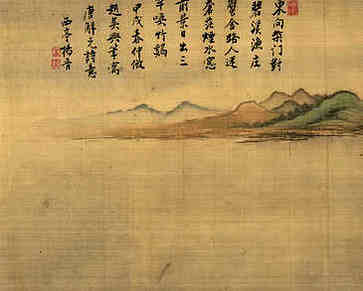 東向门對
碧溪漁庄
蟹舍路人迷
蘆花煙水窓
前葉日出三
竿喚竹鷄
甲戌春仲倣
趙吳興筆寫
唐解元詩意
西亭楊晉